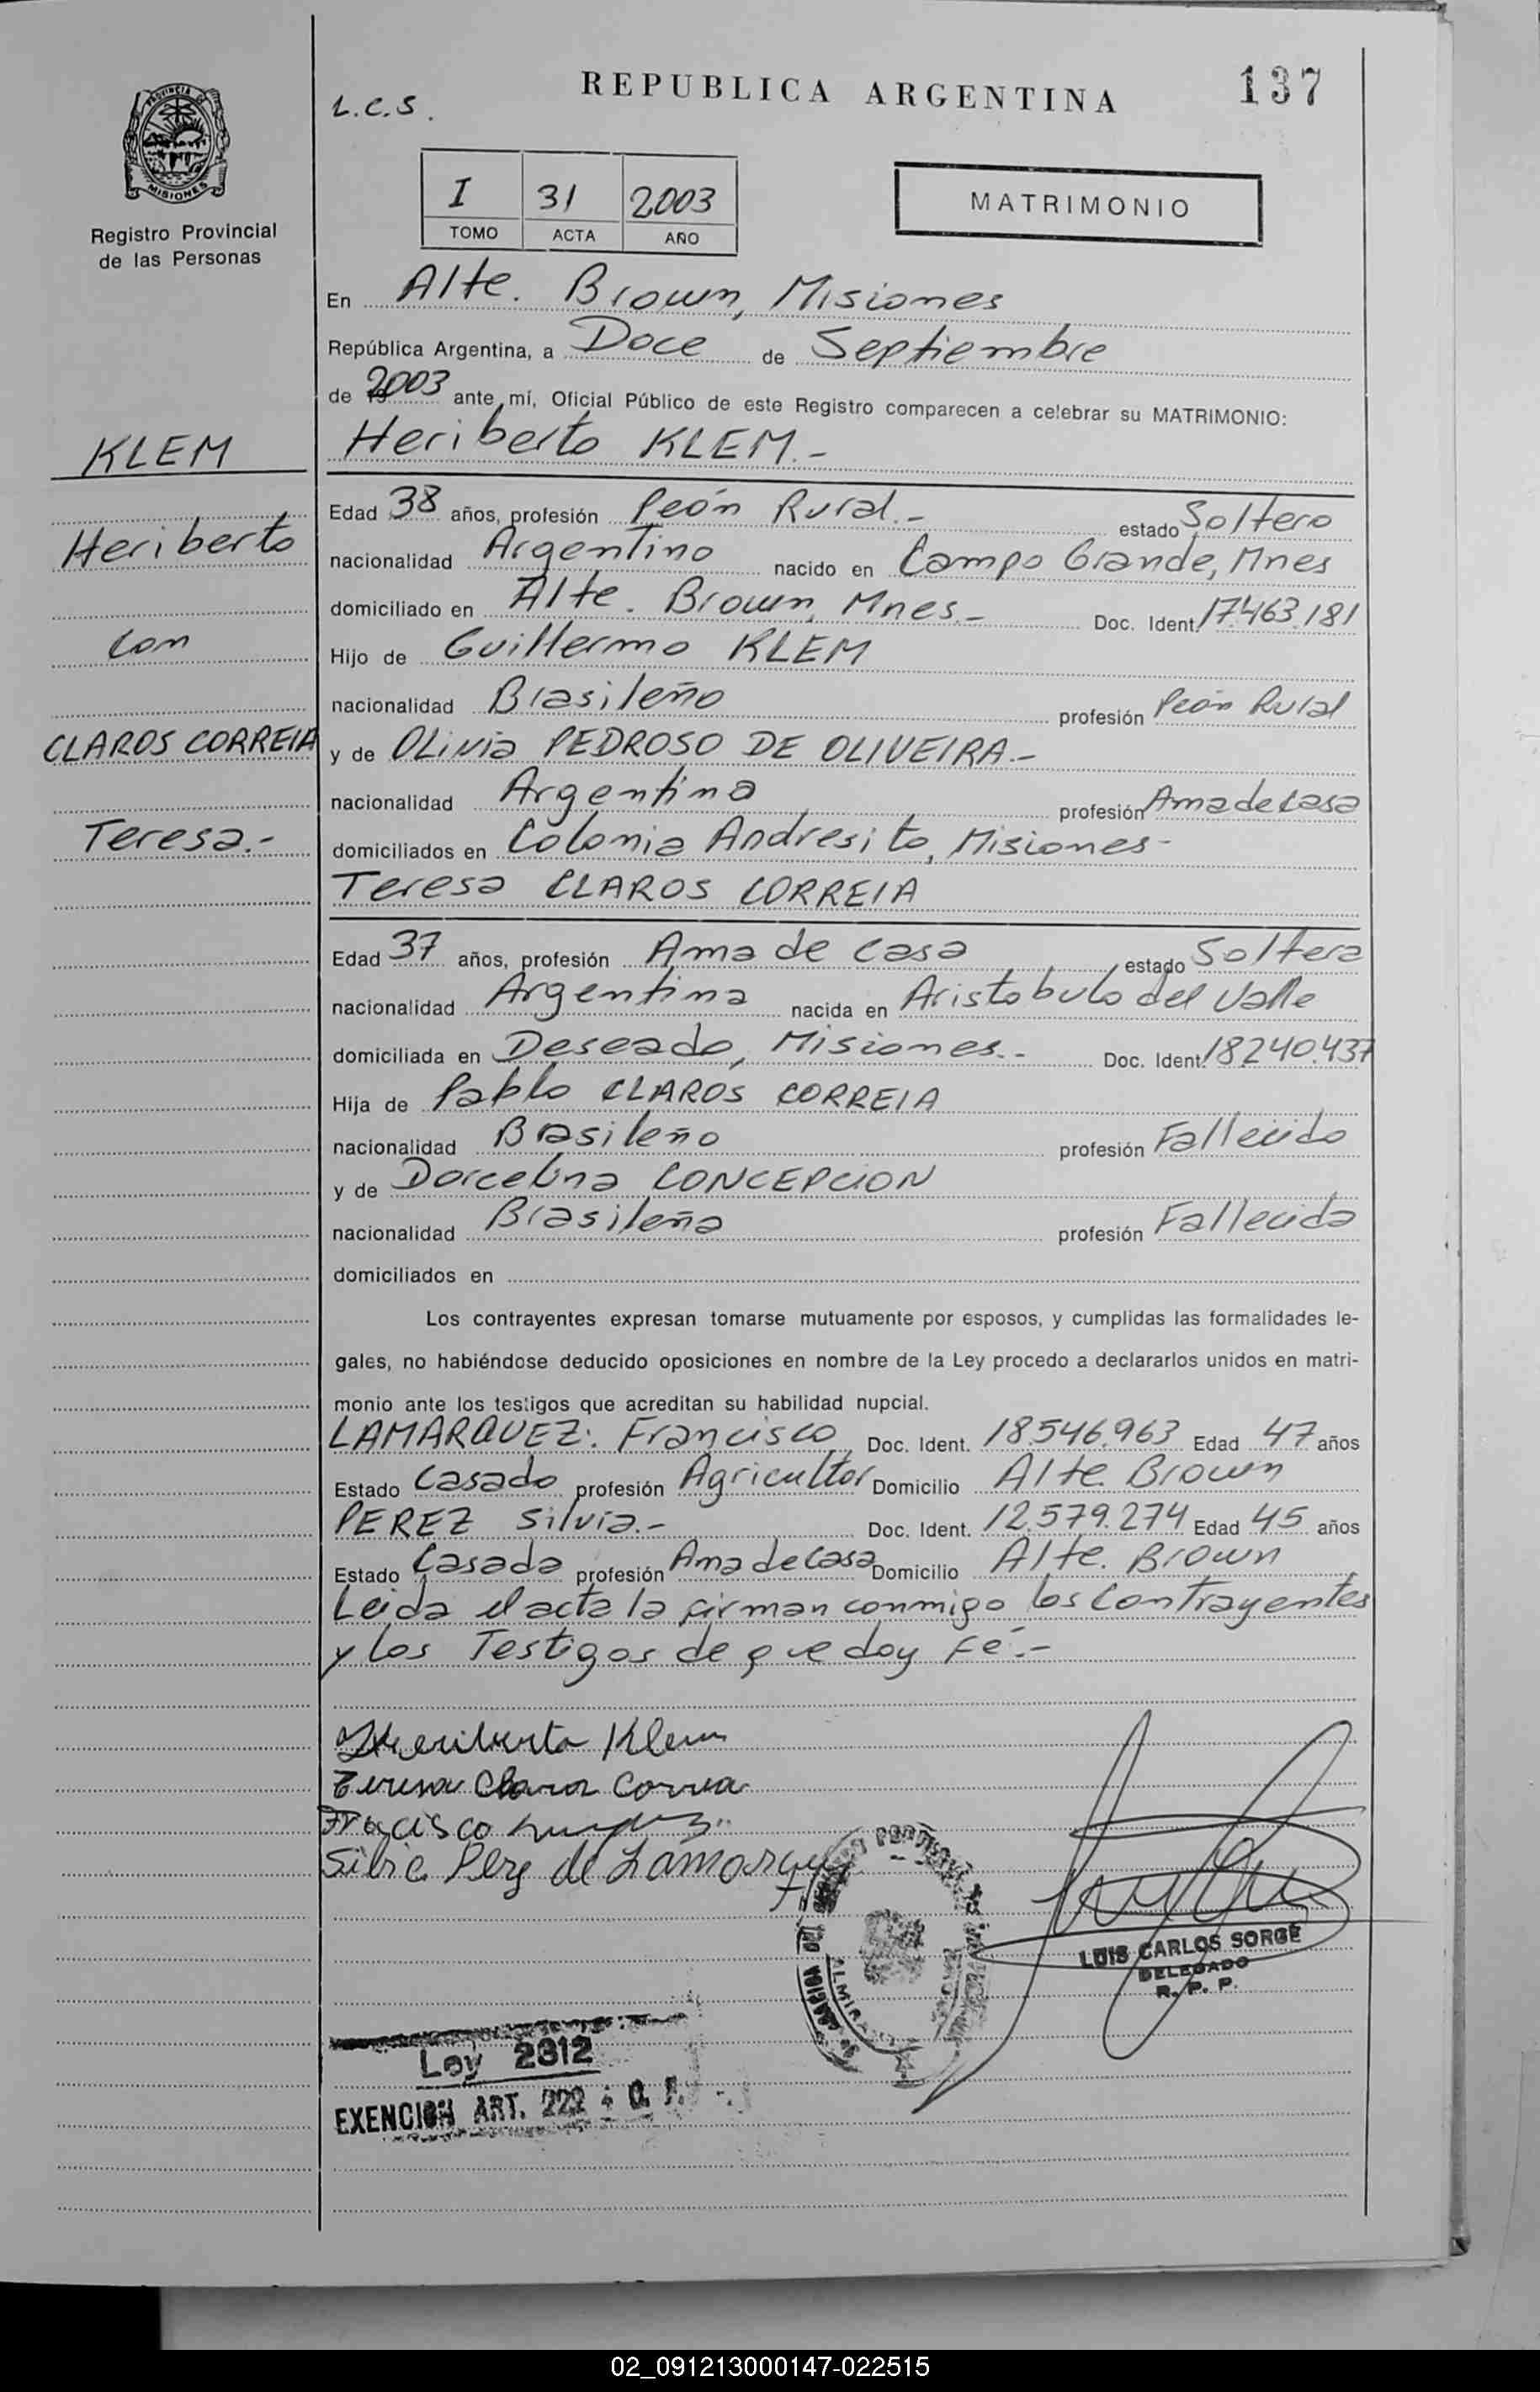 REPUBLICA ARGENTINA
137
L.C.S.
PROVINCIA DE
MISIONES
Registro Provincial
de las Personas
I 31 2003
TOMO ACTA AÑO
MATRIMONIO
En Alte. Brown, Misiones
República Argentina, a Doce de Septiembre
de 2003 ante mí, Oficial Público de este Registro comparecen a celebrar su MATRIMONIO:
KLEM
Heriberto
con
CLAROS CORREIA
Teresa.-
Heriberto KLEM.-
Edad 38 años, profesión Peón Rural.- estado Soltero
nacionalidad Argentino nacido en Campo Grande, Mnes
domiciliado en Alte. Brown, Mnes.- Doc. Ident. 17.463.181
Hijo de Guillermo KLEM
nacionalidad Brasileño profesión Peón Rural
y de OLiNia PEDROSO DE OLIVEIRA.-
nacionalidad Argentina profesión Ama de casa
domiciliados en Colonia Andresito, Misiones-
Teresa CLAROS CORREIA
Edad 37 años, profesión Ama de casa estado Soltera
nacionalidad Argentina nacida en Aristobulo del Valle
domiciliada en Deseado, Misiones.- Doc. Ident. 18.240.437
Hija de Pablo CLAROS CORREIA
nacionalidad Brasileño profesión Fallecido
y de Dorcelina CONCEPCION
nacionalidad Brasileña profesión Fallecida
domiciliados en
Los contrayentes expresan tomarse mutuamente por esposos, y cumplidas las formalidades le-
gales, no habiéndose deducido oposiciones en nombre de la Ley procedo a declararlos unidos en matri-
monio ante los testigos que acreditan su habilidad nupcial.
LAMARQUEZ: Francisco Doc. Ident. 18.546.963 Edad 47 años
Estado Casado profesión Agricultor Domicilio Alte. Brown
PEREZ Silvia.- Doc. Ident. 12.579.274 Edad 45 años
Estado Casada profesión Ama de Casa Domicilio Alte. Brown
Leida el acta la firman conmigo los Contrayentes
y los Testigos de que doy Fé.-
Heriberto Klem
Teresa Claros Correa
Francisco
Silvia Perez de Lamarquez
ALMIRANTE
LUIS CARLOS SORGE
DELEGADO
R. P. P.
Ley 2312
EXENCION ART. 222
02_091213000147-022515